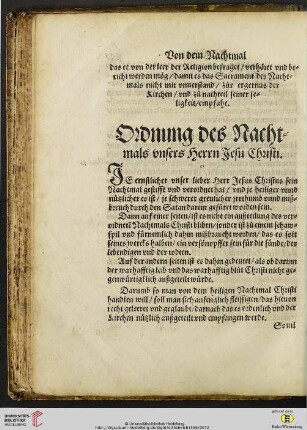 Von dem Nachtmal
das er von der leer der Religion befraget / verhöret vnd be-
richt werden mög / damit er das Sacrament des Nacht-
mals nicht mit vnuerstand / zur ergernus der
Kirchen / vnd zů nachteil seiner se-
ligkeit / empfahe.
Ordnung des Nacht-
mals vnsers Herrn Jesu Christi.
JE ernstlicher vnser lieber Herr Jesus Christus sein
Nachtmal gestifft vnd verordnet hat / vnd je heiliger vnnd
nützlicher es ist / je schwerer grewlicher jrrthumb vnnd miß-
breuch durch den Satan darein gefüret worden sein.
Dann auf einer seiten / ist es nicht ein außteilung des ver-
ordneten Nachtmals Christi bliben / sonder ist zů einem schaw-
spil vnd fürnemlich dahin mißbraucht worden / das es solt
seines wercks halben / ein versönopffer sein für die sünde / der
lebendigen vnd der todten.
Auf der andern seiten ist es dahin gedeutet / als ob darinn
der warhafftig leib vnd das warhafftig blůt Christi nicht ge-
genwürtigklich außgeteilt würde.
Darumb so man von dem heiligen Nachtmal Christi
handlen will / soll man sich anfengklich fleissigen / das hieuon
recht geleret vnd geglaubt / darnach das es ordenlich vnd der
Kirchen nützlich außgeteilt vnd empfangen werde.
Souil
© Universitätsbibliothek Heidelberg